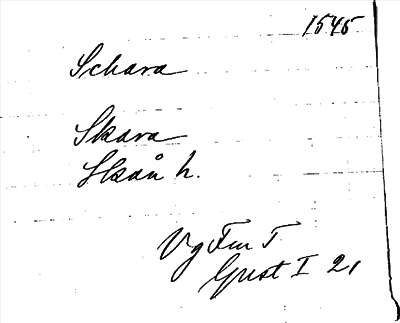 1545
Schara
Skara
Skån h.
Vg Fur T
Gust I 21